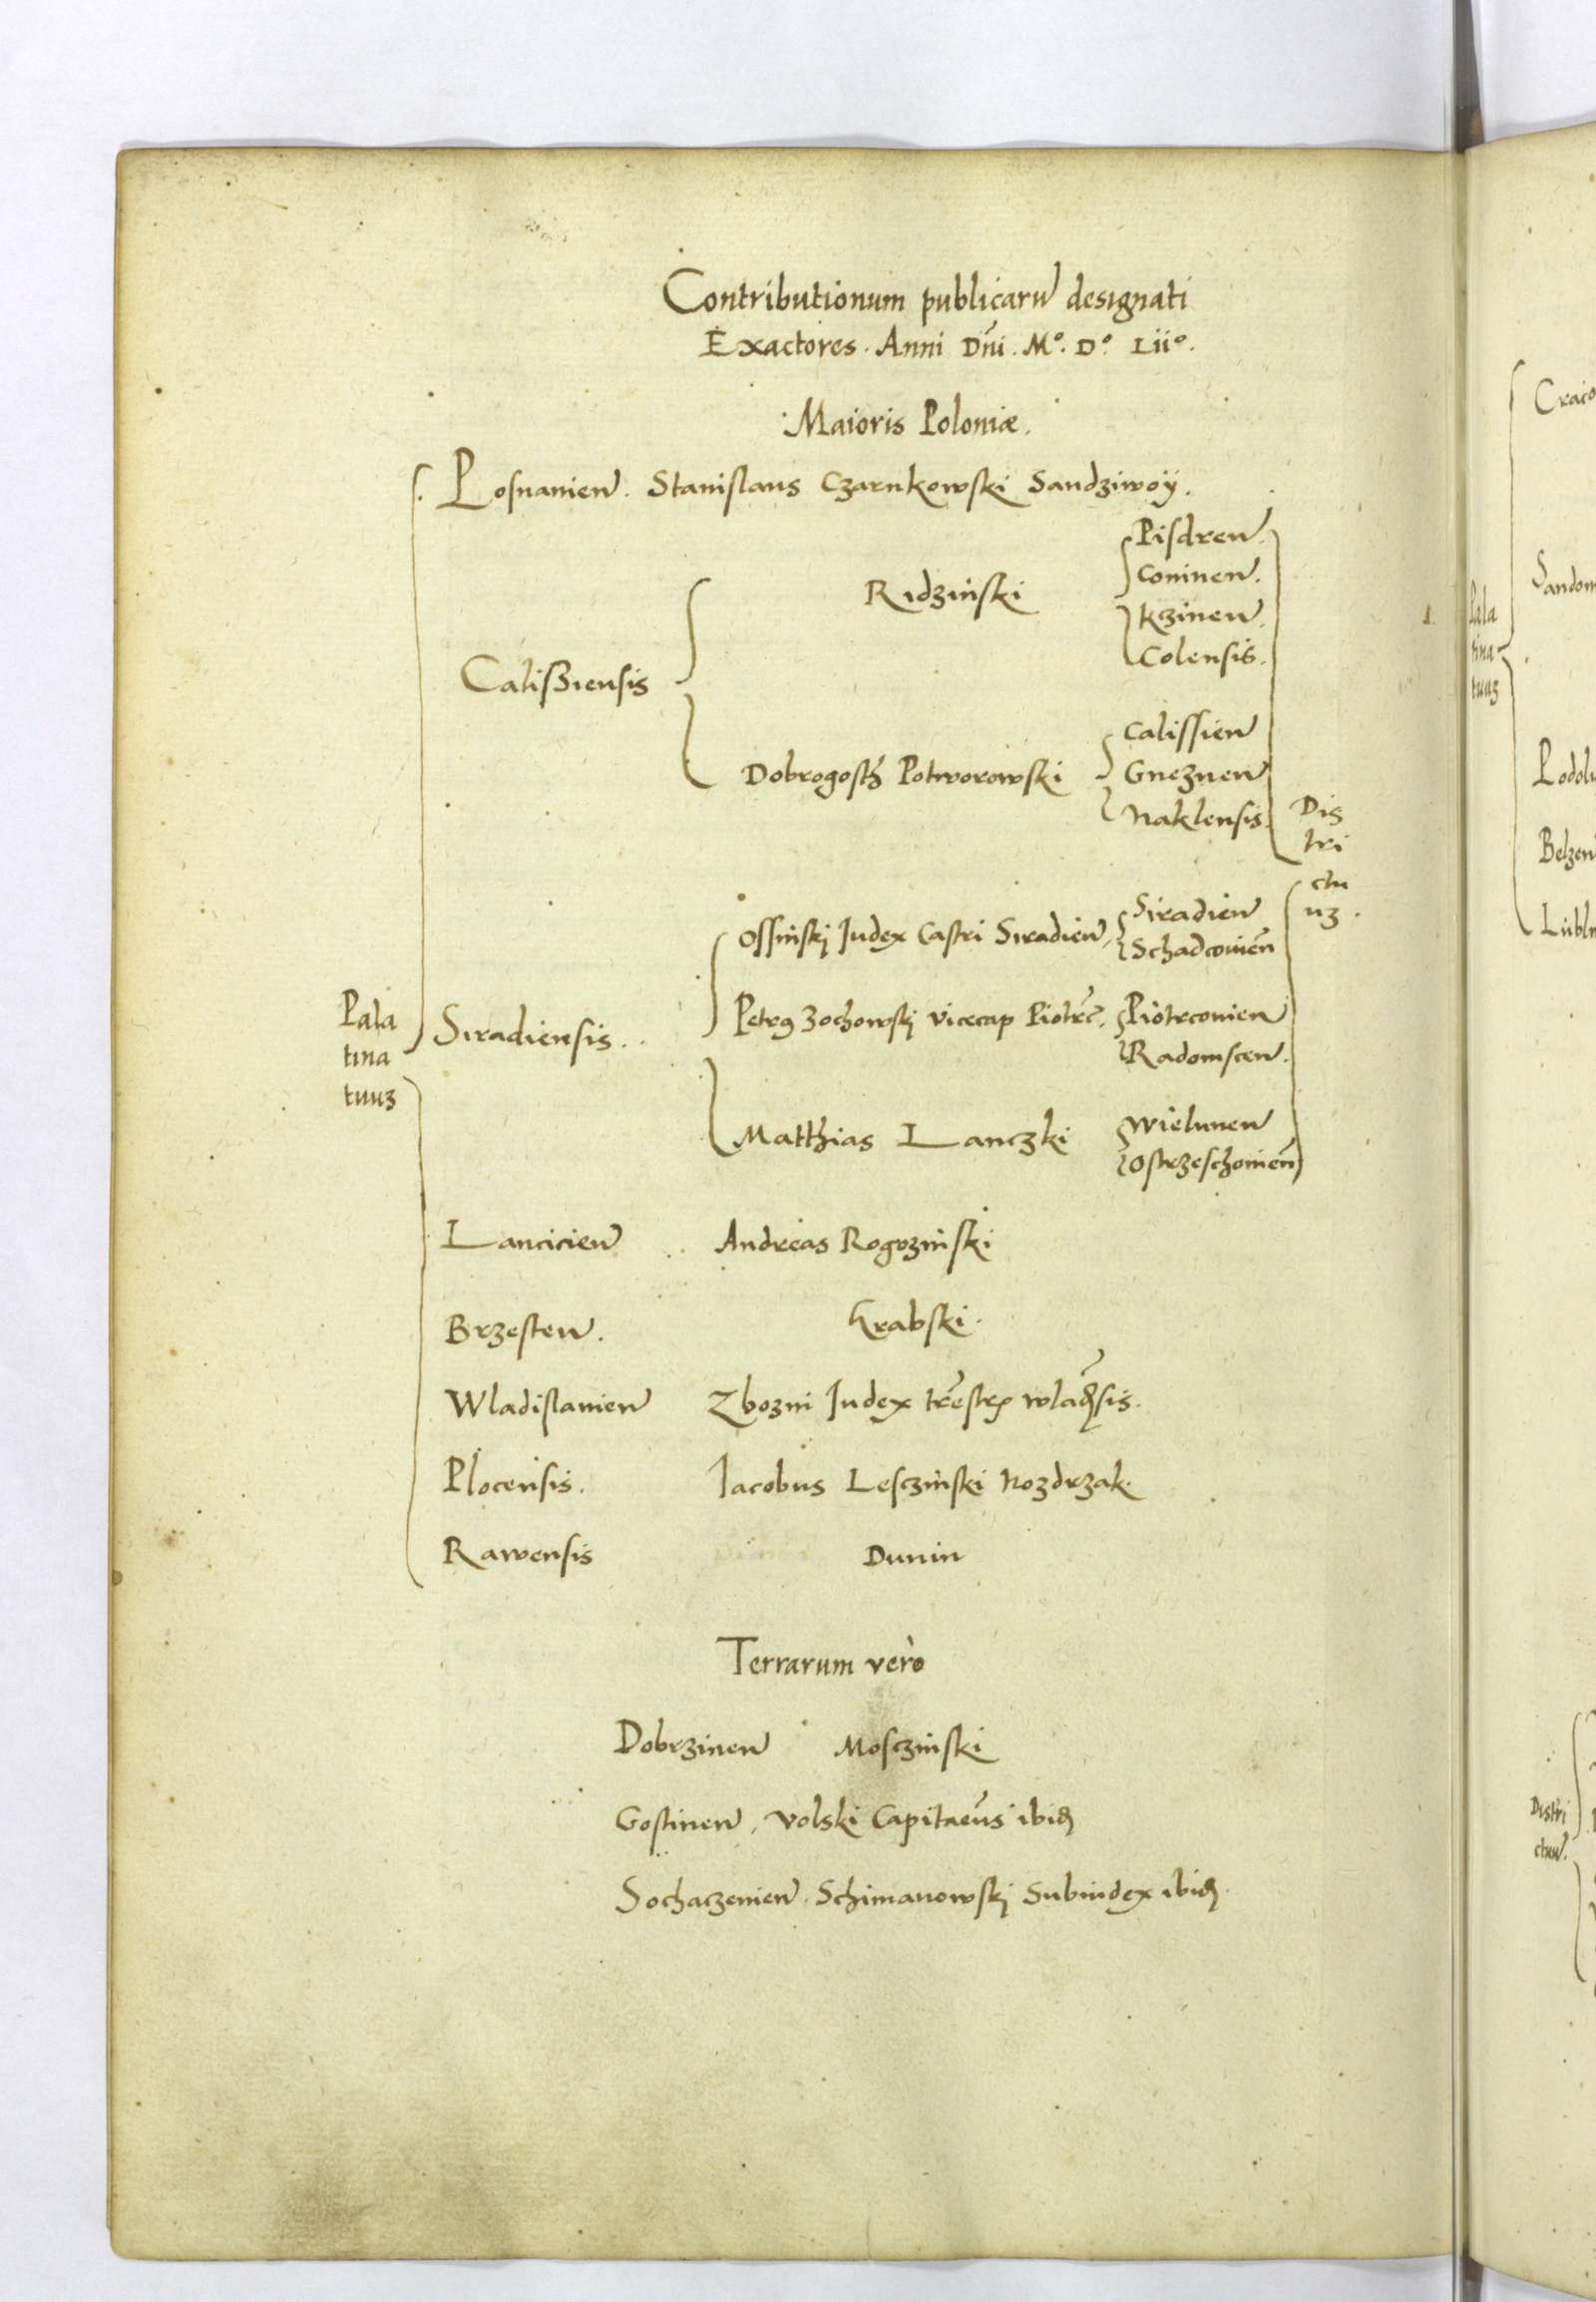 Contributionum publicaru designati
Exactores. Anni Dni. Mº. Dº Liiº.
Maioris Poloniæ.
Posnanien. Stanislaus Czarnkowski Sandziwoÿ.
Calissiensis
Ridzinski
Pisdren.
Coninen.
Kzinen.
Colensis.
Dobrogosth Potworowski
Calissien
Gneznen
Naklensis.
Dis
tri
ctu
uʒ.
Pala
tina
tuuʒ
Siradiensis.
Ossinskj Judex Castri Siradien.
Siradien
Schadcouien
Petrꝰ Zochowskj vicecap Piotrc.
Piotrcouien
Radomscen.
Matthias Lanczki
Wielunen
Ostrzeschouien
Lancicien Andreas Rogozinski
Brzesten. Krabski.
Wladislauien Zbozni Judex trestrꝭ wladꝭsis.
Plocensis. Jacobus Lesczinski Nozdrzak.
Rawensis Dunin
Terrarum verò
Dobrzinen Mosczinski
Gostinen, Volski Capitaeus ibid
Sochaczeuien. Schimanowskj Subiudex ibid.
1
Pala
tina
tuuʒ
Craco
Sandom
Podol
Belzen
Lubl
Distri
ctuu.